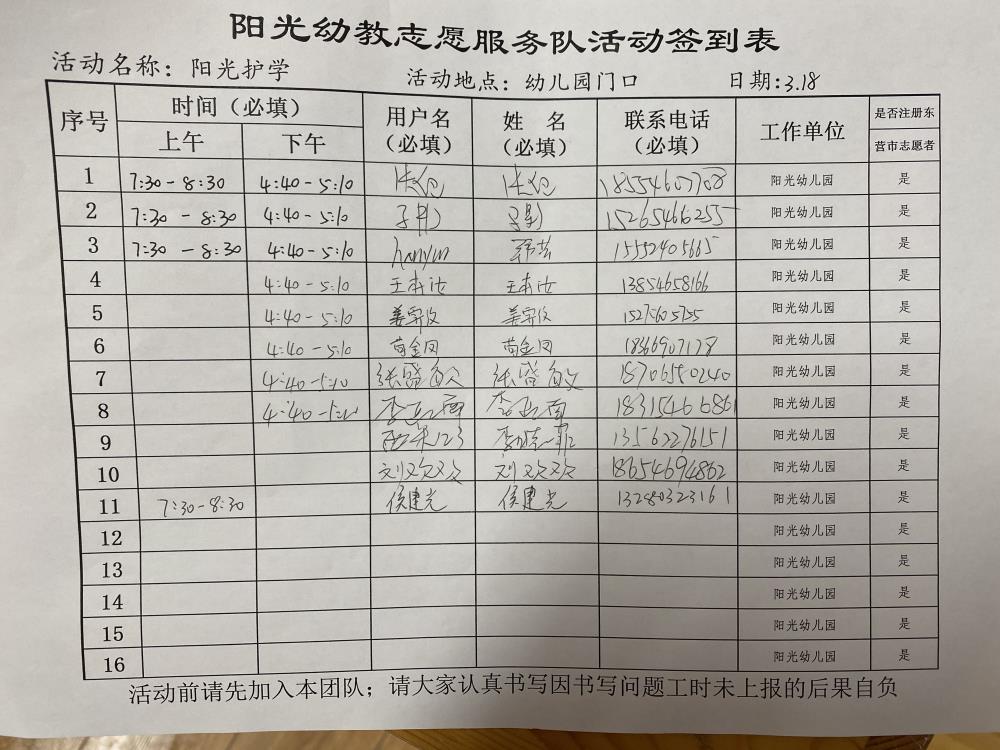 阳光幼教志愿服务队活动签到表
活动名称：阳光护学 活动地点：幼儿园门口 日期：3.18
序号 时间（必填） 用户名（必填） 姓 名（必填） 联系电话（必填） 工作单位 是否注册东营市志愿者
上午 下午
1 7:30-8:30 4:40-5:10 阳光幼儿园 是
2 7:30-8:30 4:40-5:10 阳光幼儿园 是
3 7:30-8:30 4:40-5:10 hanyun 韩芸 15552405665 阳光幼儿园 是
4 4:40-5:10 王本汝 王本汝 13854658166 阳光幼儿园 是
5 4:40-5:10 阳光幼儿园 是
6 4:40-5:10 苗金凤 苗金凤 阳光幼儿园 是
7 4:40-5:10 18706580240 阳光幼儿园 是
8 4:40-5:10 阳光幼儿园 是
9 13562276151 阳光幼儿园 是
10 刘欢欢 刘欢欢 18654694862 阳光幼儿园 是
11 7:30-8:30 侯建光 侯建光 13280323161 阳光幼儿园 是
12 阳光幼儿园 是
13 阳光幼儿园 是
14 阳光幼儿园 是
15 阳光幼儿园 是
16 阳光幼儿园 是
活动前请先加入本团队；请大家认真书写因书写问题工时未上报的后果自负